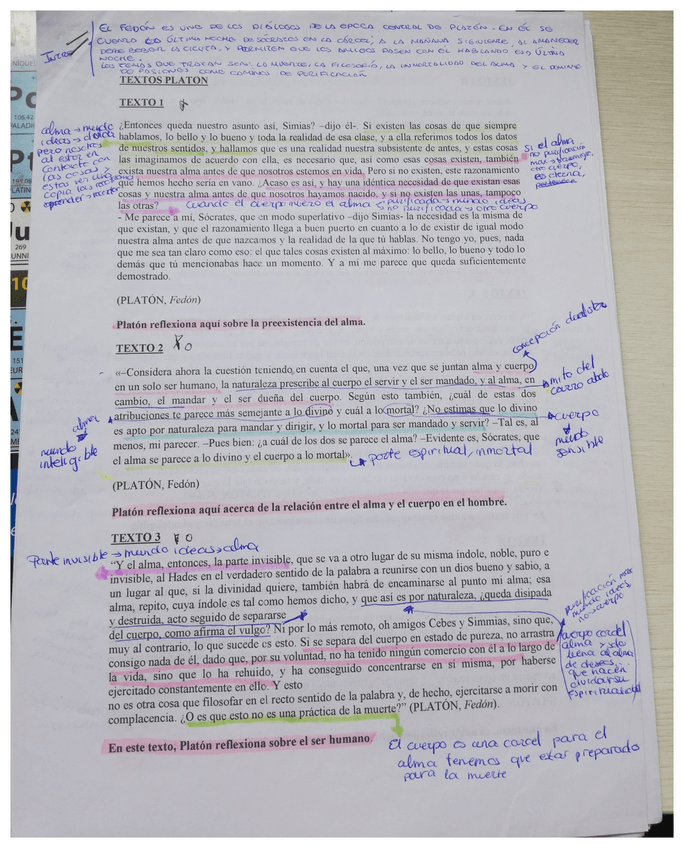 EL FEDÓN ES UNO DE LOS DIÁLOGOS DE LA EPOCA CENTRAL DE PLATÓN. EN ÉL SE
CUENTA LA ÚLTIMA NOCHE DE SÓCRATES EN LA CÁRCEL, A LA MAÑANA SIGUIENTE, AL AMANECER
DEBE BEBER LA CICUTA, Y PERMITEN QUE LOS AMIGOS PASEN CON ÉL HABLANDO ESA ÚLTIMA
NOCHE.
LOS TEMAS QUE TRATAN SERÍ: LA MUERTE, LA FILOSOFÍA, LA INMORTALIDAD DEL ALMA Y EL DOMINIO
DE PASIONES COMO CAMINOS DE PURIFICACIÓN
Intro
TEXTOS PLATON
TEXTO 1
¿Entonces queda nuestro asunto así, Simias? –dijo él-. Si existen las cosas de que siempre
hablamos, lo bello y lo bueno y toda la realidad de esa clase, y a ella referimos todos los datos
de nuestros sentidos, y hallamos que es una realidad nuestra subsistente de antes, y estas cosas
las imaginamos de acuerdo con ella, es necesario que, así como esas cosas existen, también
exista nuestra alma antes de que nosotros estemos en vida. Pero si no existen, este razonamiento
que hemos hecho sería en vano. ¿Acaso es así, y hay una idéntica necesidad de que existan esas
cosas y nuestra alma antes de que nosotros hayamos nacido, y si no existen las unas, tampoco
las otras?
Cuando el cuerpo muere el alma
purificada → mundo ideas
no purificada → otro cuerpo
alma → mundo
ideas →
pero nosotros
al estar en
contacto con
las cosas y
copia las
aprender → recor
si el alma
no purificación
otro cuerpo,
es eterna,
- Me parece a mí, Sócrates, que en modo superlativo –dijo Simias- la necesidad es la misma de
que existan, y que el razonamiento llega a buen puerto en cuanto a lo de existir de igual modo
nuestra alma antes de que nazcamos y la realidad de la que tú hablas. No tengo yo, pues, nada
que me sea tan claro como eso: el que tales cosas existen al máximo: lo bello, lo bueno y todo lo
demás que tú mencionabas hace un momento. Y a mi me parece que queda suficientemente
demostrado.
(PLATÓN, Fedón)
Platón reflexiona aquí sobre la preexistencia del alma.
TEXTO 2
concepción dualista
«–Considera ahora la cuestión teniendo en cuenta el que, una vez que se juntan alma y cuerpo
en un solo ser humano, la naturaleza prescribe al cuerpo el servir y el ser mandado, y al alma, en
cambio, el mandar y el ser dueña del cuerpo. Según esto también, ¿cuál de estas dos
atribuciones te parece más semejante a lo divino y cuál a lo mortal? ¿No estimas que lo divino
es apto por naturaleza para mandar y dirigir, y lo mortal para ser mandado y servir? –Tal es, al
menos, mi parecer. –Pues bien: ¿a cuál de los dos se parece el alma? –Evidente es, Sócrates, que
el alma se parece a lo divino y el cuerpo a lo mortal».
parte espiritual, inmortal
mito del
carro alado
cuerpo
mundo
sensible
alma
mundo
inteligible
(PLATÓN, Fedón)
Platón reflexiona aquí acerca de la relación entre el alma y el cuerpo en el hombre.
TEXTO 3
Parte invisible → mundo ideas → alma
“Y el alma, entonces, la parte invisible, que se va a otro lugar de su misma índole, noble, puro e
invisible, al Hades en el verdadero sentido de la palabra a reunirse con un dios bueno y sabio, a
un lugar al que, si la divinidad quiere, también habrá de encaminarse al punto mi alma; esa
alma, repito, cuya índole es tal como hemos dicho, y que así es por naturaleza, ¿queda disipada
y destruida, acto seguido de separarse
del cuerpo, como afirma el vulgo? Ni por lo más remoto, oh amigos Cebes y Simmias, sino que,
muy al contrario, lo que sucede es esto. Si se separa del cuerpo en estado de pureza, no arrastra
consigo nada de él, dado que, por su voluntad, no ha tenido ningún comercio con él a lo largo de
la vida, sino que lo ha rehuido, y ha conseguido concentrarse en sí misma, por haberse
ejercitado constantemente en ello. Y esto
no es otra cosa que filosofar en el recto sentido de la palabra y, de hecho, ejercitarse a morir con
complacencia. ¿O es que esto no es una práctica de la muerte?” (PLATÓN, Fedón).
purificación
mundo ideas
no → cuerpo
cuerpo carcel
alma → solo
llena al alma
de deseos...
que hacen
olvidar su
espiritualidad
En este texto, Platón reflexiona sobre el ser humano.
El cuerpo es una carcel para el
alma tenemos que estar preparado
para la muerte